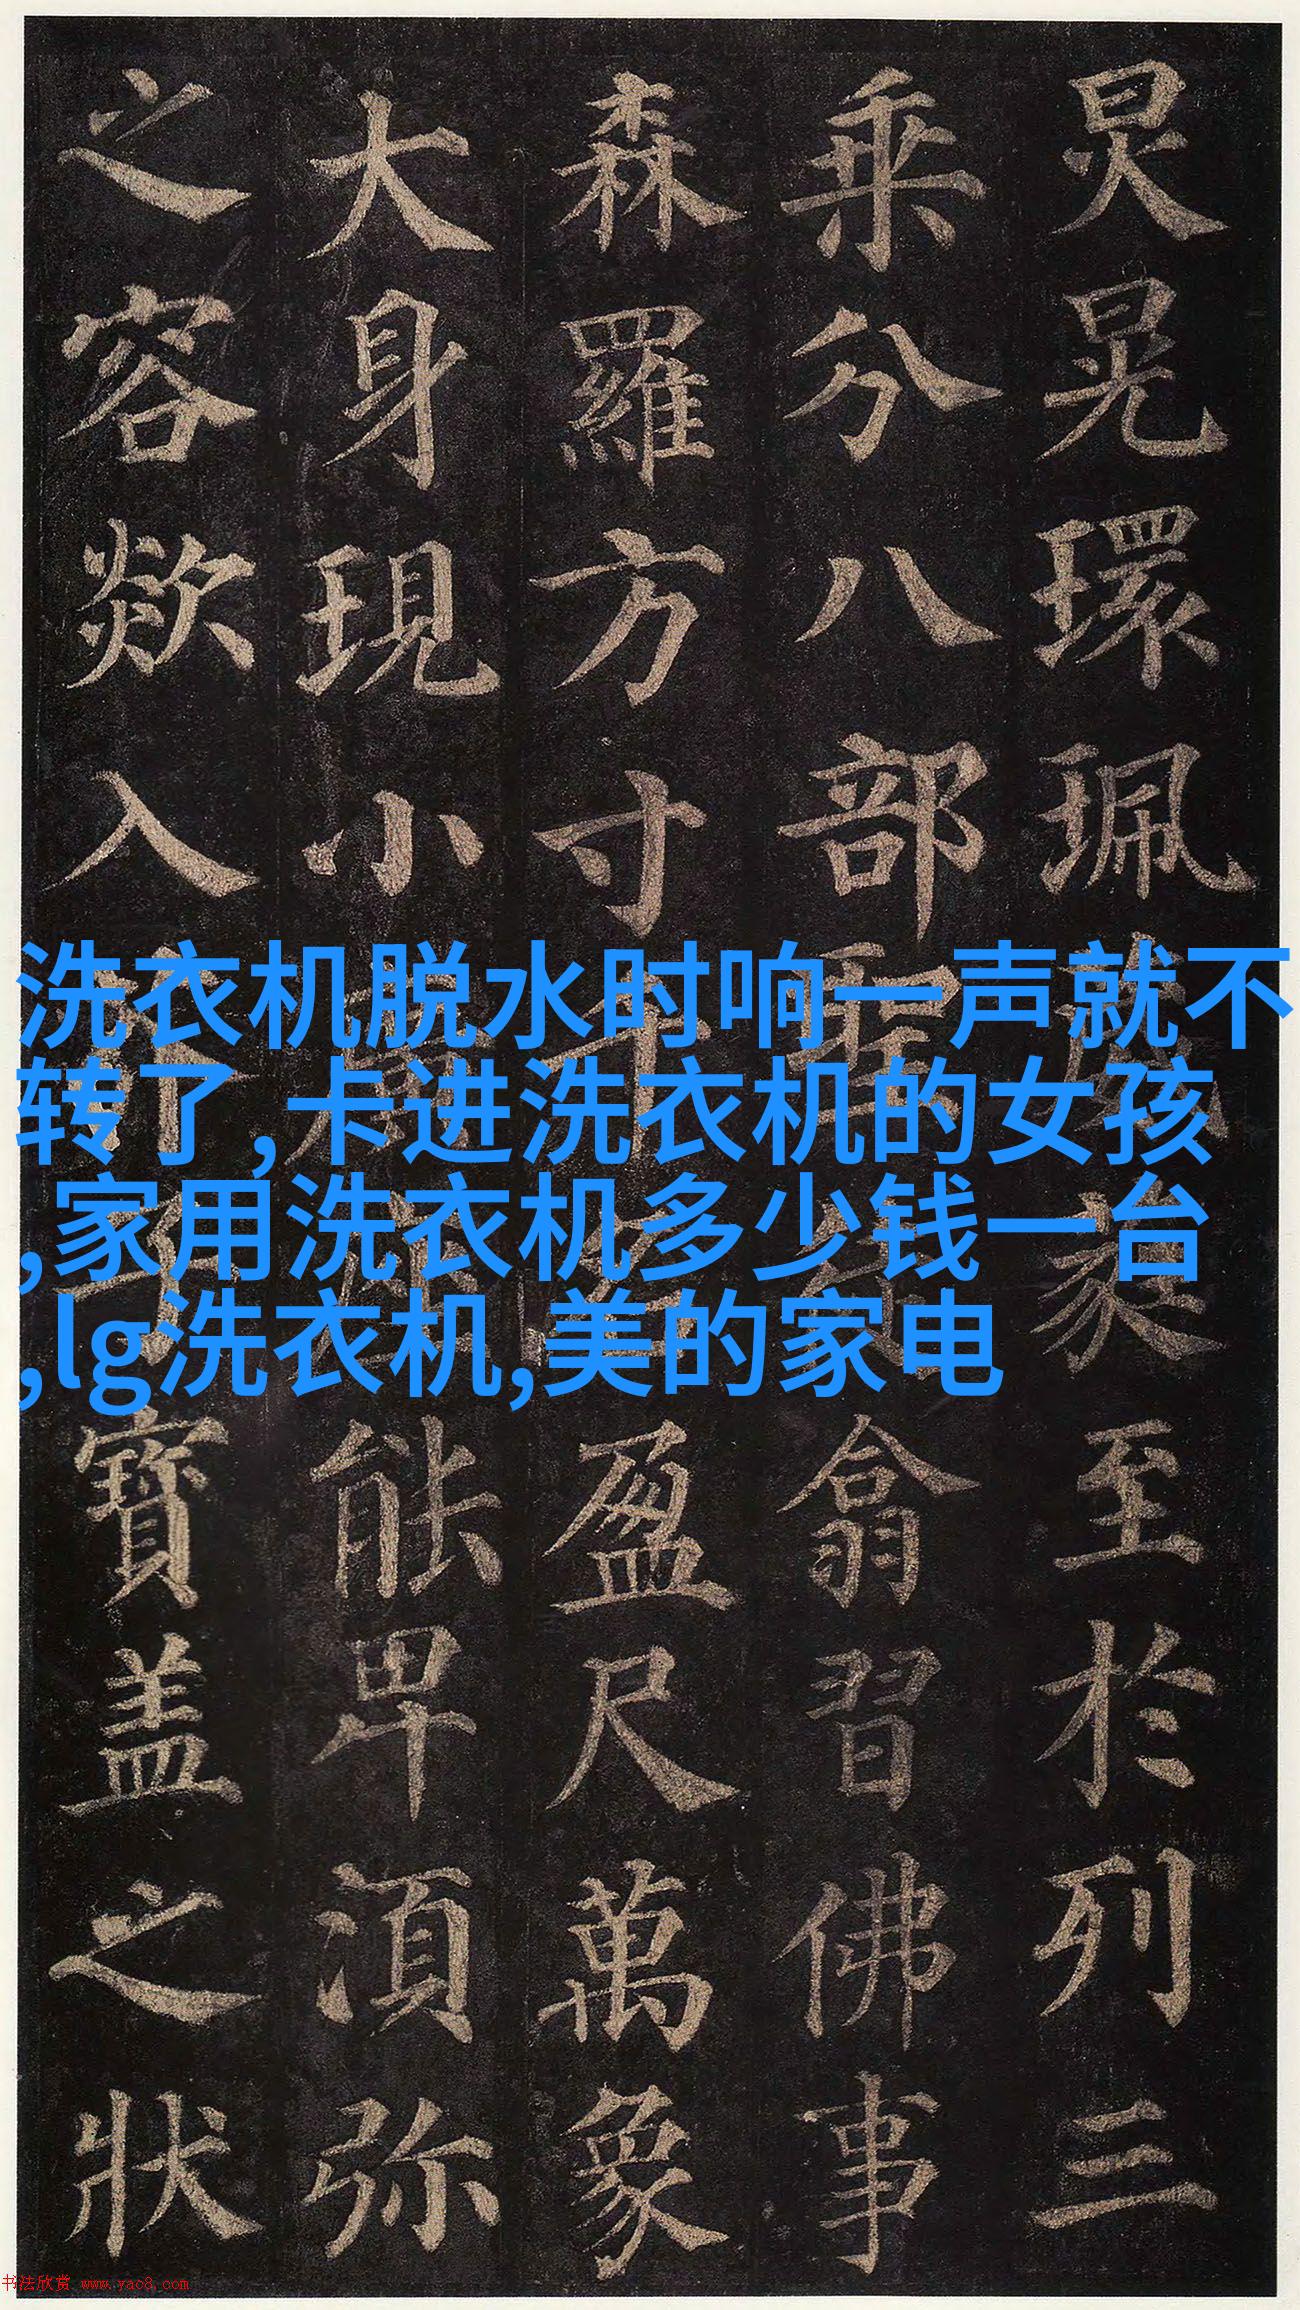 炅晃環珮葳蕤至於列三
乘分八部聖徒翕習佛事
森羅方寸千名盈尺萬象
大身現小廣座能卑湏弥
之容欻入芥子寶盖之狀
洗衣机脱水时响一声就不
转了,卡进洗衣机的女孩
,家用洗衣机多少钱一台
,lg洗衣机,美的家电
书法欣赏 www.yac8.com